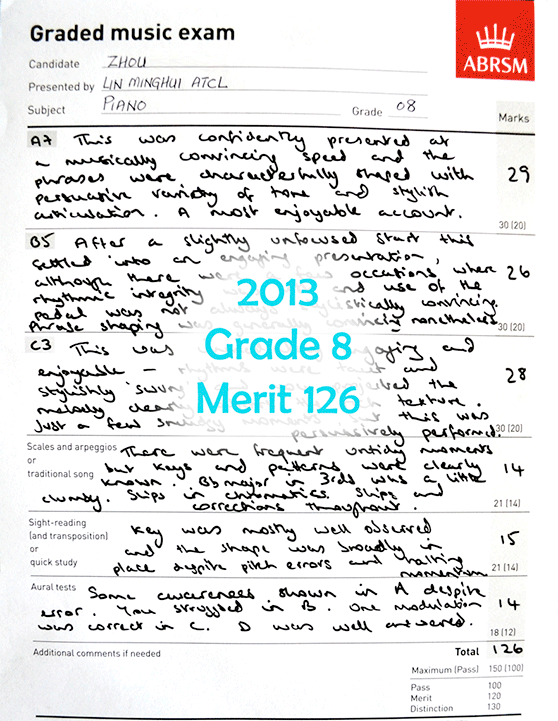 Graded music exam
ABRSM
Candidate ZHOU
Presented by LIN MINGHUI ATCL
Subject PIANO Grade 08
Marks
A7 This was confidently presented at
a musically convincing speed and the
phrases were characterfully shaped with
persuasive variety of tone and stylish
articulation. A most enjoyable account.
29
30 (20)
B5 After a slightly unfocused start this
settled into an engaging presentation,
although there were a few occasions when
rhythmic integrity and use of the
pedal was not always stylistically convincing.
Phrase shaping was generally convincing nonetheless.
26
30 (20)
2013
Grade 8
Merit 126
C3 This was engaging and
enjoyable – rhythms were taut and
stylishly 'swung' and the
melody clearly texture.
Just a few smudgy moments but this was
persuasively performed.
28
30 (20)
Scales and arpeggios
or
traditional song
There were frequent untidy moments
but keys and patterns were clearly
known. Bb major in 3rds was a little
clumsy. Slips in chromatics. Slips and
corrections throughout.
14
21 (14)
Sight-reading
(and transposition)
or
quick study
Key was mostly well observed
and the shape was broadly in
place despite pitch errors and halting
momentum.
15
21 (14)
Aural tests
Some awareness shown in A despite
error. You struggled in B. One modulation
was correct in C. D was well answered.
14
18 (12)
Additional comments if needed
Total 126
Maximum (Pass) 150 (100)
Pass 100
Merit 120
Distinction 130